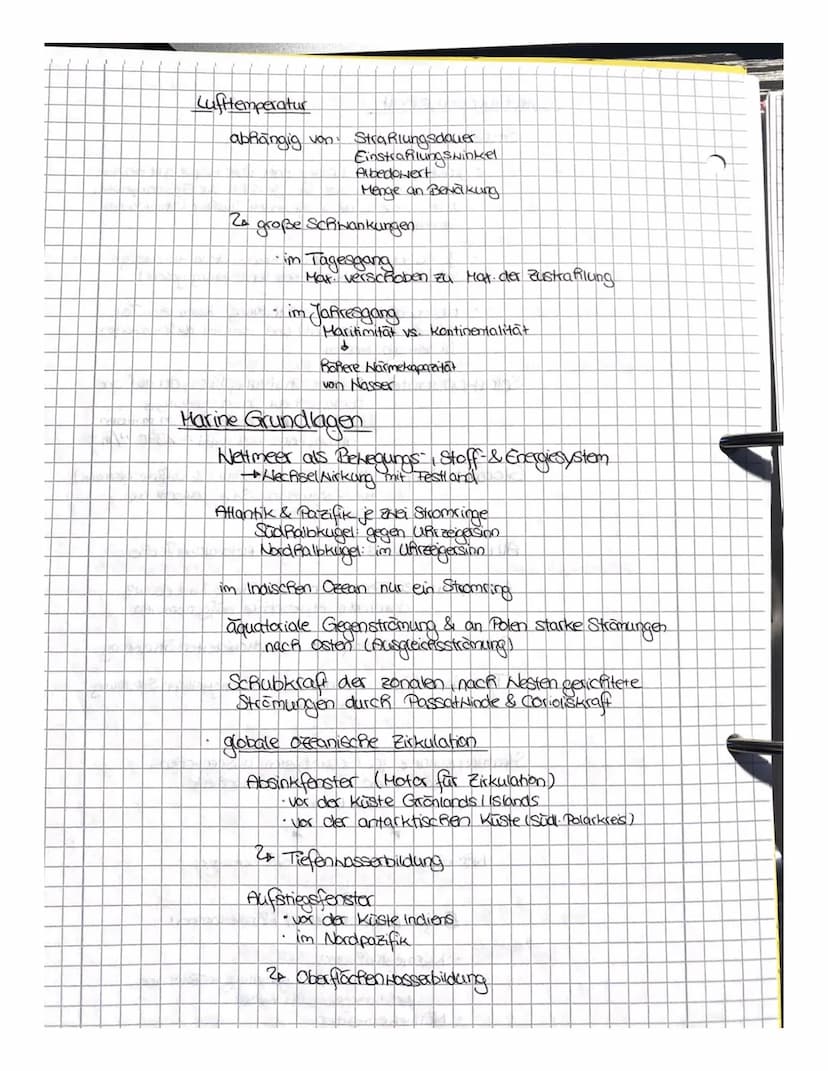 Lufttemperatur
abhängig von: Strahlungsdauer
Einstrahlungswinkel
Albedowert
Menge an Bewölkung
↳ große Schwankungen
· im Tagesgang
Max. verschoben zu Max. der Zustrahlung
· im Jahresgang
Maritimität vs. Kontinentalität
↓
höhere Wärmekapazität
von Wasser
Marine Grundlagen
Weltmeer als Bewegungs-, Stoff- & Energiesystem
→ Wechselwirkung mit Festland
Atlantik & Pazifik je zwei Stromringe
Südhalbkugel: gegen Uhrzeigersinn
Nordhalbkugel: im Uhrzeigersinn
im Indischen Ozean nur ein Stromring
äquatoriale Gegenströmung & an Polen starke Strömungen
nach Osten (Ausgleichsströmung)
Schubkraft der zonalen, nach Westen gerichtete
Strömungen durch Passatwinde & Corioliskraft
· globale ozeanische Zirkulation
Absinkfenster (Motor für Zirkulation)
· vor der Küste Grönlands / Islands
· vor der antarktischen Küste (südl. Polarkreis)
↳ Tiefenwasserbildung
Aufstiegsfenster
· vor der Küste Indiens
· im Nordpazifik
↳ Oberflächenwasserbildung